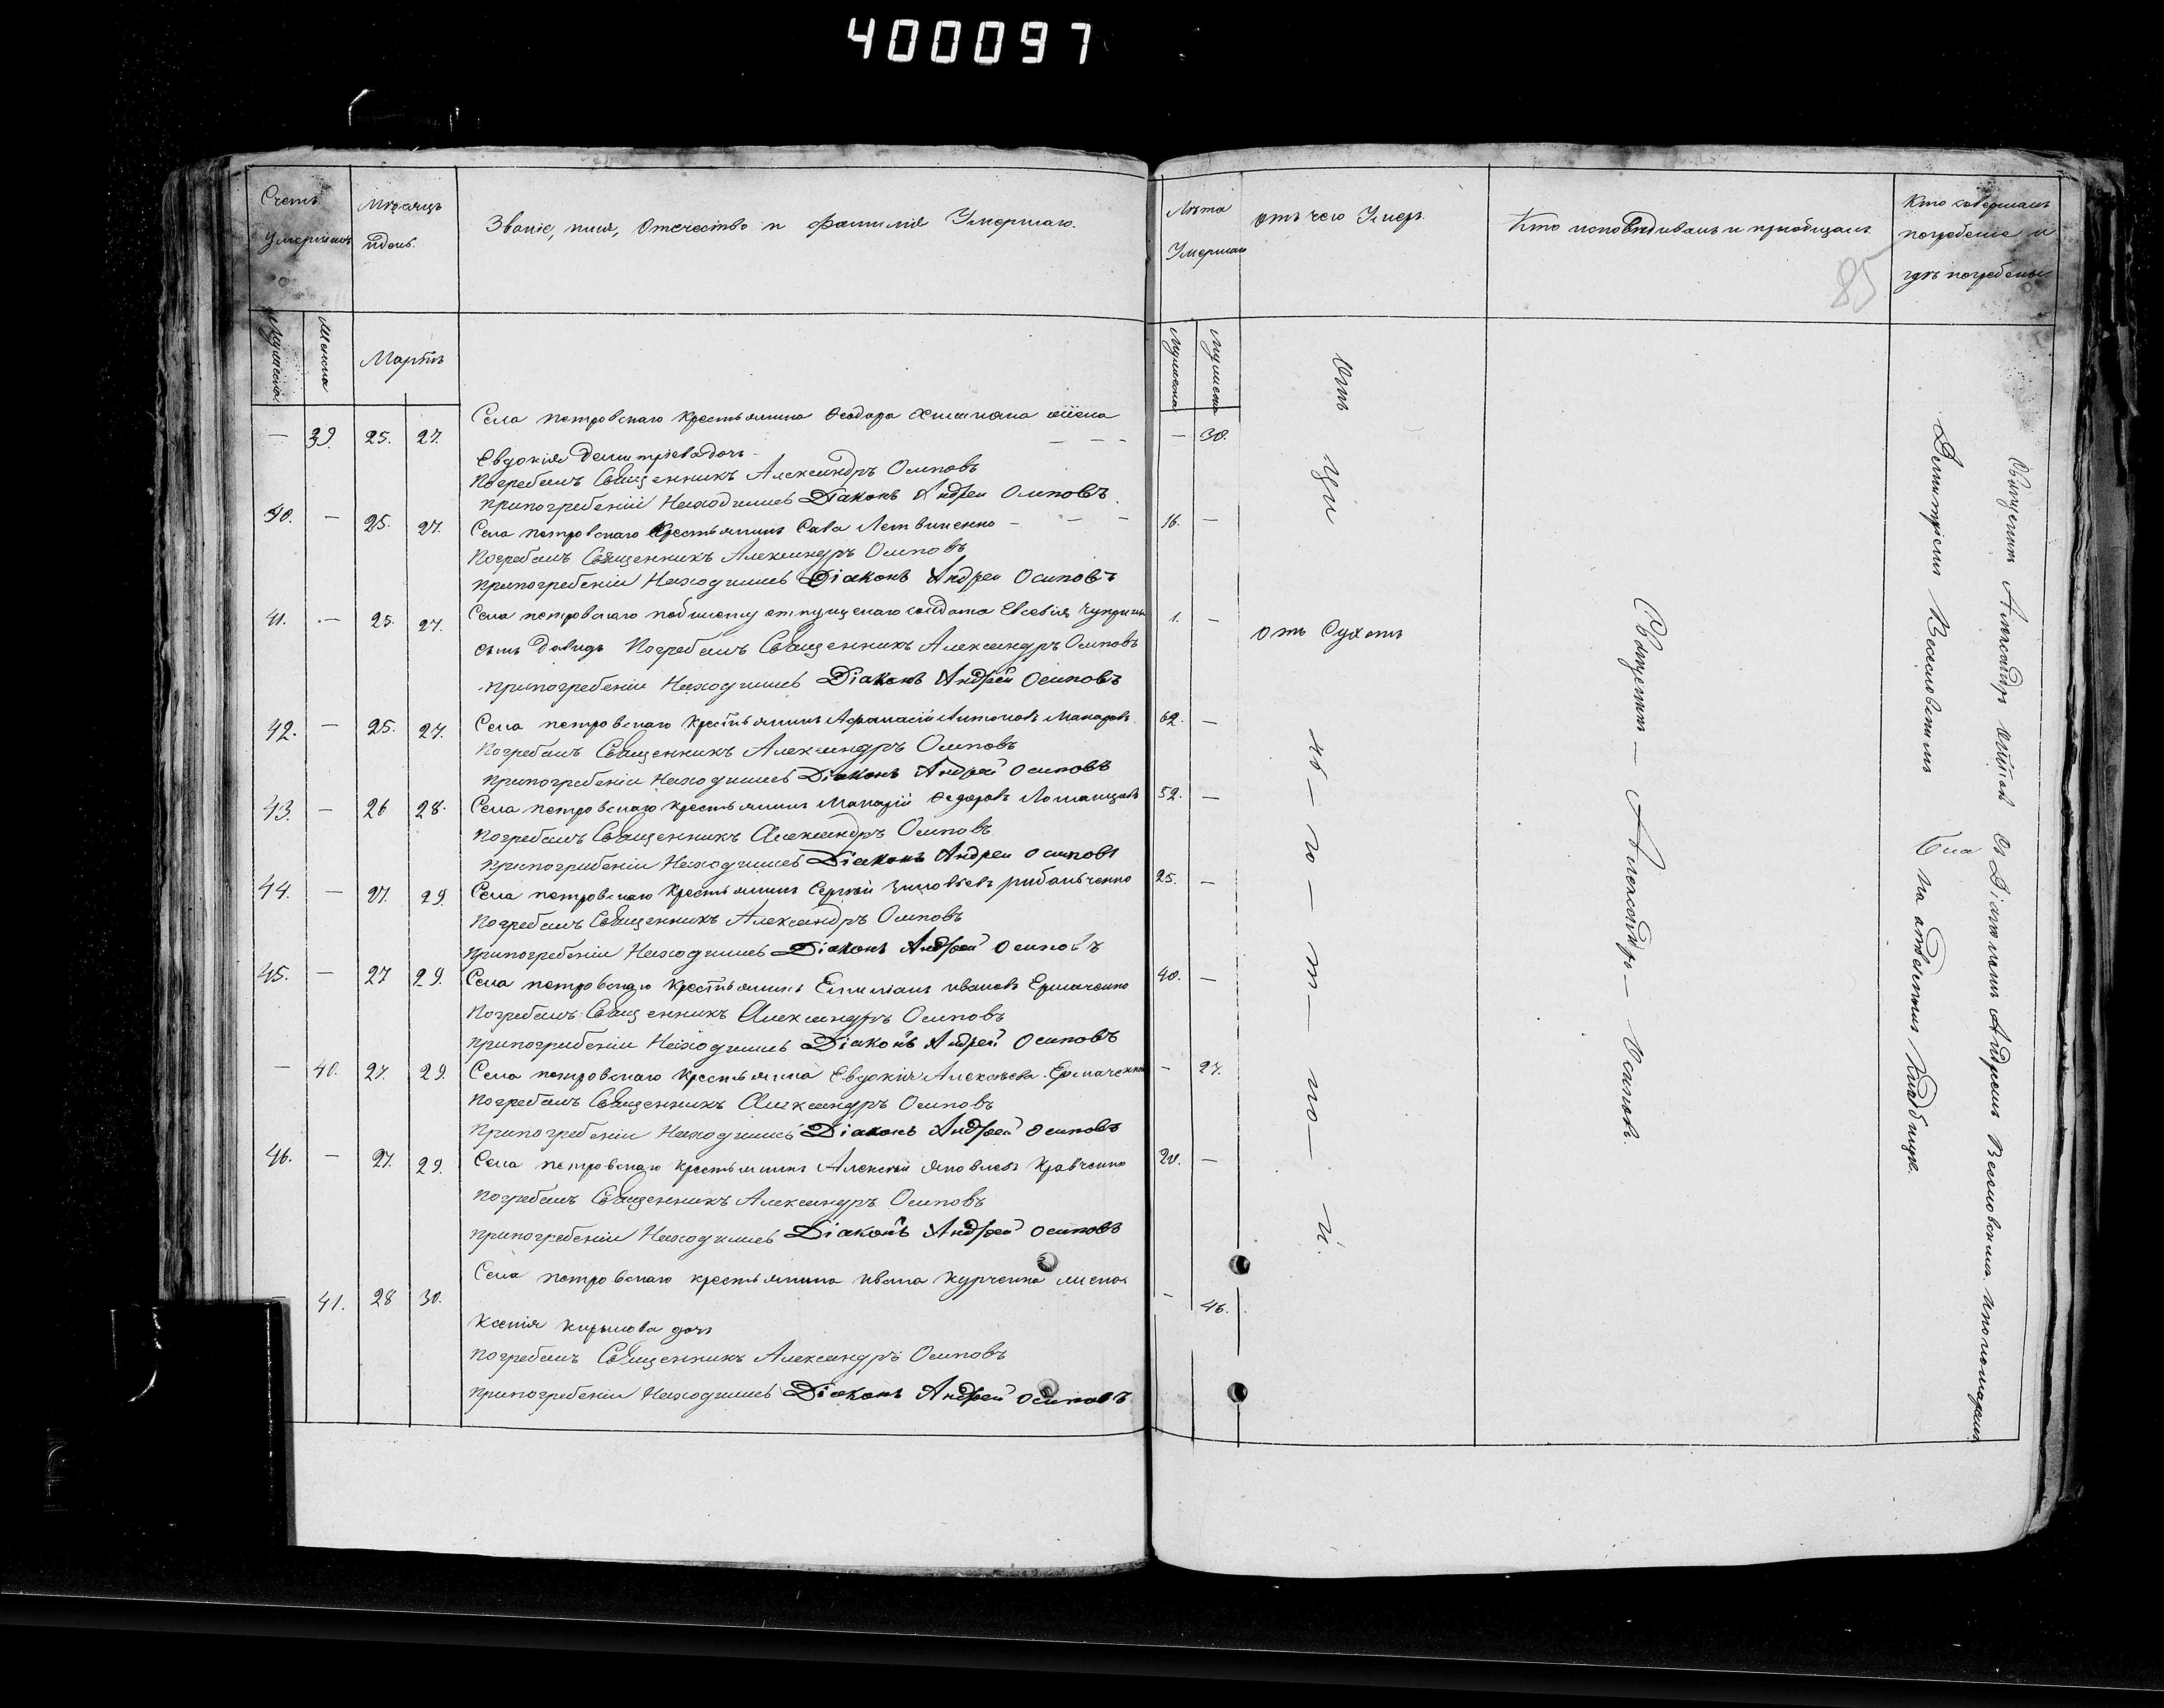 400097
Счетъ Умершихъ
Мѣсяцъ и день.
Званіе, имя, Отечество и фамилія Умершаго.
Лѣта Умершаго
отъ чего Умеръ.
Кто исповѣдывалъ и пріобщалъ.
Кто совершалъ погребеніе и гдѣ погребены
85
Мужеска.
Женска
Мартъ
Мужеска
— 39. 25. 27. Села петровскаго крестьянина Ѳеодора жена — 30.
Евдокія Димитріева дочь
Погребалъ Священникъ Александръ Осиповъ
при погребеніи Находился Діаконъ Андрей Осиповъ.
40. — 25. 27. Села петровскаго Крестьянинъ Сава Летвиненко — 16. —
Погребалъ Священникъ Александръ Осиповъ
при погребеніи Находился Діаконъ Андрей Осиповъ
41. — 25. 27. Села петровскаго по билету отпущенаго солдата Евсевія 1. —
сынъ Давидъ Погребалъ Священникъ Александръ Осиповъ
отъ Сухотъ
при погребеніи Находился Діаконъ Андрей Осиповъ
42. — 25. 27. Села петровскаго Крестьянинъ Афанасій Антоновъ Макаровъ 62. —
Погребалъ Священникъ Александръ Осиповъ
при погребеніи Находился Діаконъ Андрей Осиповъ
43. — 26 28. Села петровскаго крестьянинъ Макарій Ѳедоровъ 52. —
Погребалъ Священникъ Александръ Осиповъ
при погребеніи Находился Діаконъ Андрей Осиповъ
44. — 27. 29. Села петровскаго Крестьянинъ Сергѣй Зиновьевъ рибальченко 25. —
Погребалъ Священникъ Александръ Осиповъ
при погребеніи Находился Діаконъ Андрей Осиповъ
45. — 27 29. Села петровскаго Крестьянинъ Емиліанъ ивановъ Ермаченко 40. —
Погребалъ Священникъ Александръ Осиповъ
при погребеніи Находился Діаконъ Андрей Осиповъ
— 40. 27. 29. Села петровскаго Крестьянина Евдокія Алексѣева Ермаченко — 27.
Погребалъ Священникъ Александръ Осиповъ
при погребеніи Находился Діаконъ Андрей Осиповъ
46. — 27. 29. Села петровскаго крестьянинъ Алексѣй яковлевъ Кравченко 20. —
Погребалъ Священникъ Александръ Осиповъ
при погребеніи Находился Діаконъ Андрей Осиповъ
Села петровскаго крестьянина ивана Курченка жена
— 41. 28 30. — 46.
Ксенія кирилова дочь
погребалъ Священникъ Александръ Осиповъ
при погребеніи Находился Діаконъ Андрей Осиповъ
Отъ
Священникъ — Александръ — Осиповъ.
Священникъ Александръ Осиповъ Съ Діакономъ Андреемъ Веселовскимъ. и пономаремъ
Димитріемъ Веселовскимъ на Кладбищѣ.